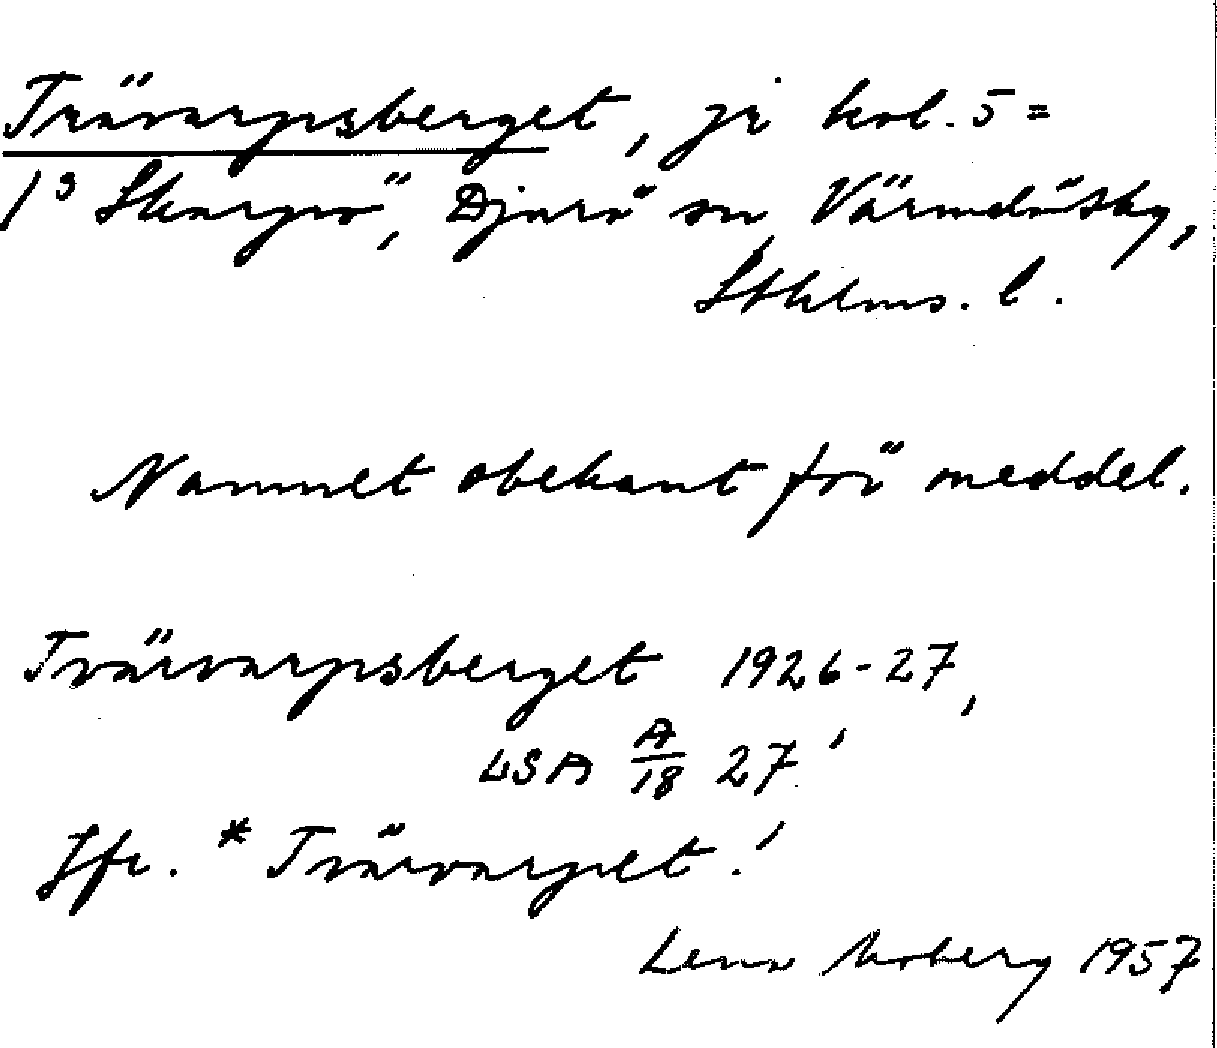 Trävarpsberget, på kol. 5 =
1³ Skarpö, Djurö sn, Värmdö skg,
Sthlms. l.
Namnet obekant för meddel.
Tvärvarpsberget 1926-27,
LSA A/18 27!
Jfr. * Tvärvarpet.!
Lena Moberg 1957